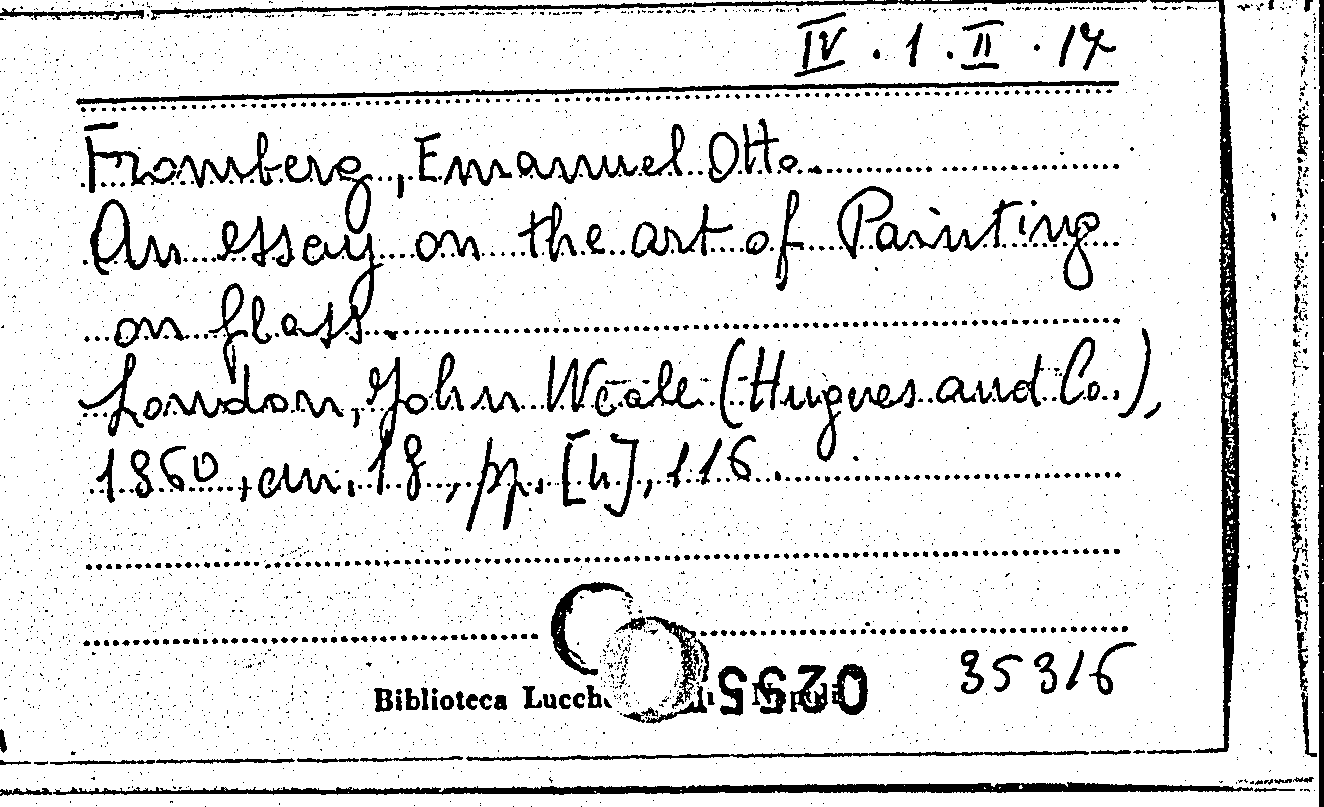 IV . 1 . II . 17
Fromberg, Emanuel Otto.
An essay on the art of Painting
on glass.
London, John Weale (Hugues and Co.),
1860, cm. 18, pp. [4], 116.
Biblioteca
35316